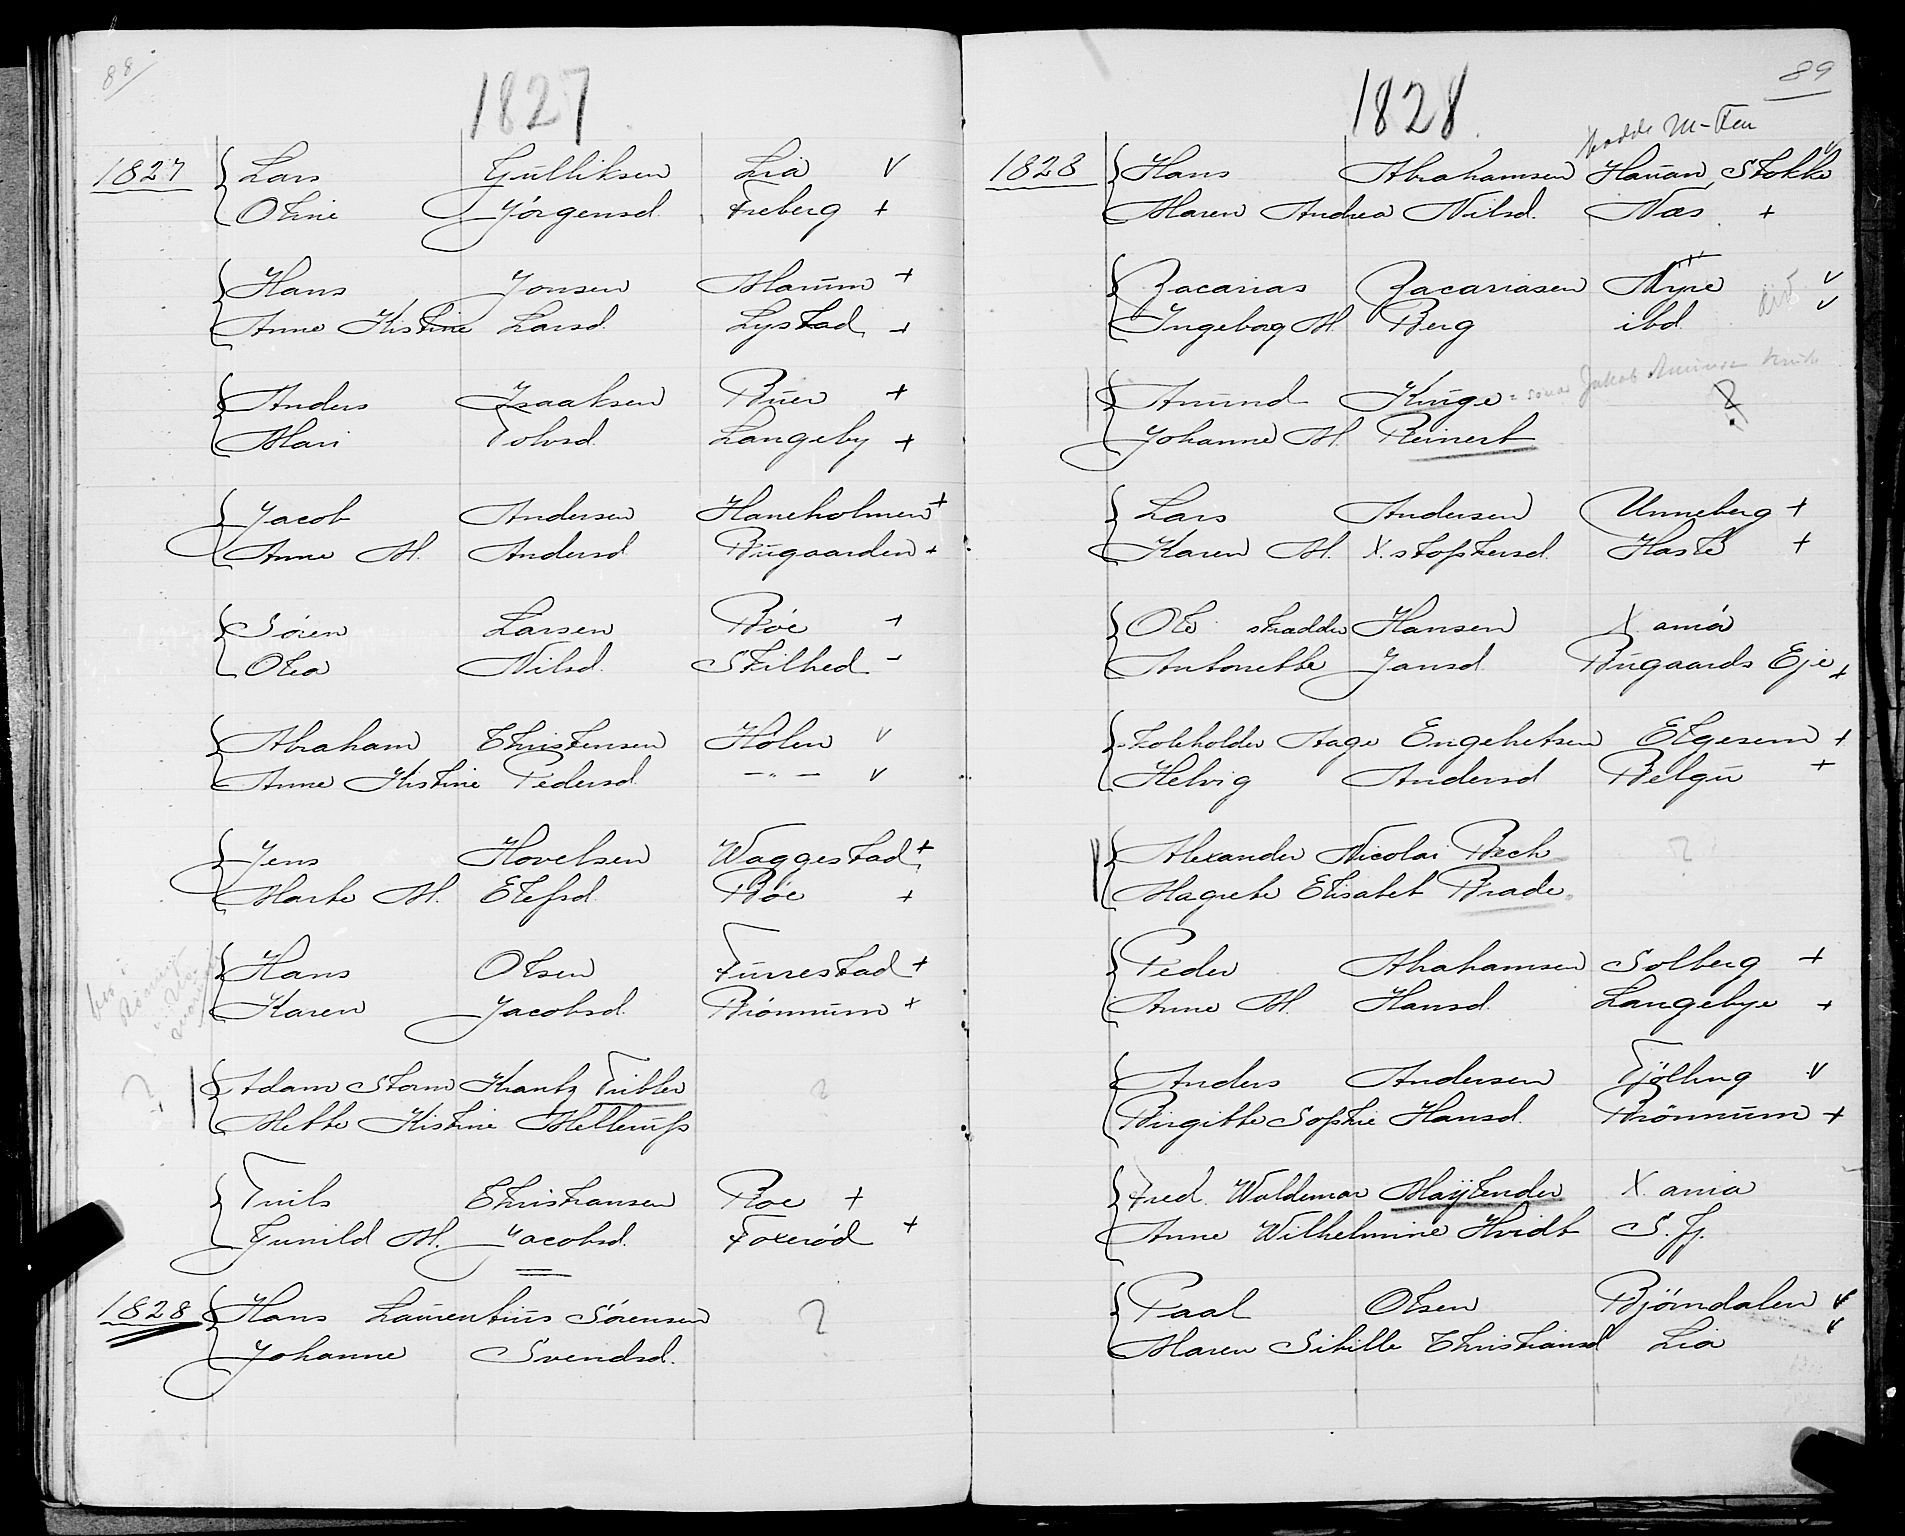 88
1827
1827 Lars Gulliksen Lia v
Oline Jörgensd. Freberg +
Hans Jonsen Marum +
Anne Kistine Larsd. Lystad +
Anders Isaaksen Buer +
Mari Tolvsd. Langeby +
Jacob Andersen Haneholmen +
Anne M. Andersd. Bugaarden +
Sören Larsen Böe +
Olea Nilsd. Skilhed -
Abraham Christensen Holen v
Anne Kistine Pedersd. — " — v
Jens Hovelsen Waggestad +
Marte M. Elefsd. Böe +
Hans Olsen Furrestad +
Karen Jacobsd. Brönnum +
Adam Storm Krantz Tribler ?
Mette Kistine Mellerups
Truls Christiansen Boe +
Gunild M. Jacobsd. Foxeröd +
1828 Hans Laurentius Sörensen ?
Johanne Svendsd.
89
1828
1828 Hans Abrahamsen Hauan, Stokke v
Maren Andrea Nilsd. Næs +
Zacarias Zacariasen Myre v
Ingeborg M. Berg ibd. v
Amund Kruge = Jakob ?
Johanne M. Reinert
Lars Andersen Unneberg +
Karen M. X.stophersd. Haslé +
Ole skrædder Hansen X.aniá
Antonette Jansd. Bugaards Eje +
Skoleholder Aage Engebretsen Elgesem +
Helvig Andersd. Helgu +
Alexander Nicolai Bech ?
Magrete Elisabet Brade.
Peder Abrahamsen Solberg +
Anne M. Hansd. Langebye +
Anders Andersen Fjölling v
Birgitte Sophie Hansd. Brönnum +
Fred. Waldemar Maylender X.ania
Anne Wilhelmine Hvidt S. fj.
Paal Olsen Björndalen v
Maren Sibille Christiansd. Lia v